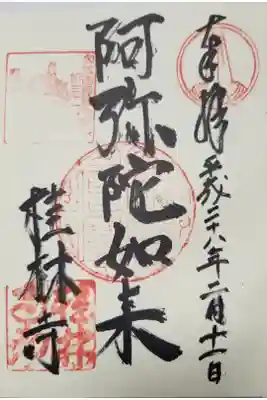 奉拝 平成二十八年二月十一日
阿弥陀如来
桂林寺